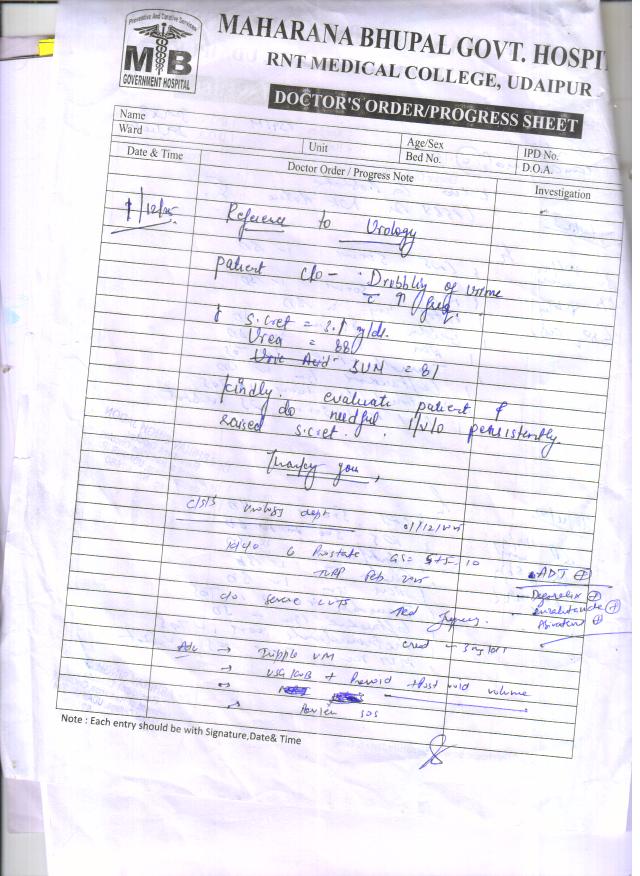 Preventive And Curative Services
MB
GOVERNMENT HOSPITAL
MAHARANA BHUPAL GOVT. HOSPI
RNT MEDICAL COLLEGE, UDAIPUR
DOCTOR'S ORDER/PROGRESS SHEET
Name Age/Sex IPD No.
Ward Unit Bed No. D.O.A.
Date & Time Doctor Order / Progress Note Investigation
1/12/25 Reference to Urology
patient c/o - Dribbling of urine
c ↑ freq.
S. creat = 3.1 g/dl.
Urea = 88
Uric Acid SUM = 81
Kindly evaluate patient &
do needful i/v/o persistently
raised s.creat.
Thank you,
c/s/b Urology dept 01/12/2025
K/c/o Prostate GS = 5+5 = 10
TURP Feb 2025
ADT +
- Degarelix +
c/o severe LUTS frequency.
creat - 3 mg/dl
Adv → Tripple
→ USG KUB + Prevoid + Post void volume
→ Review SOS
Note : Each entry should be with Signature,Date& Time